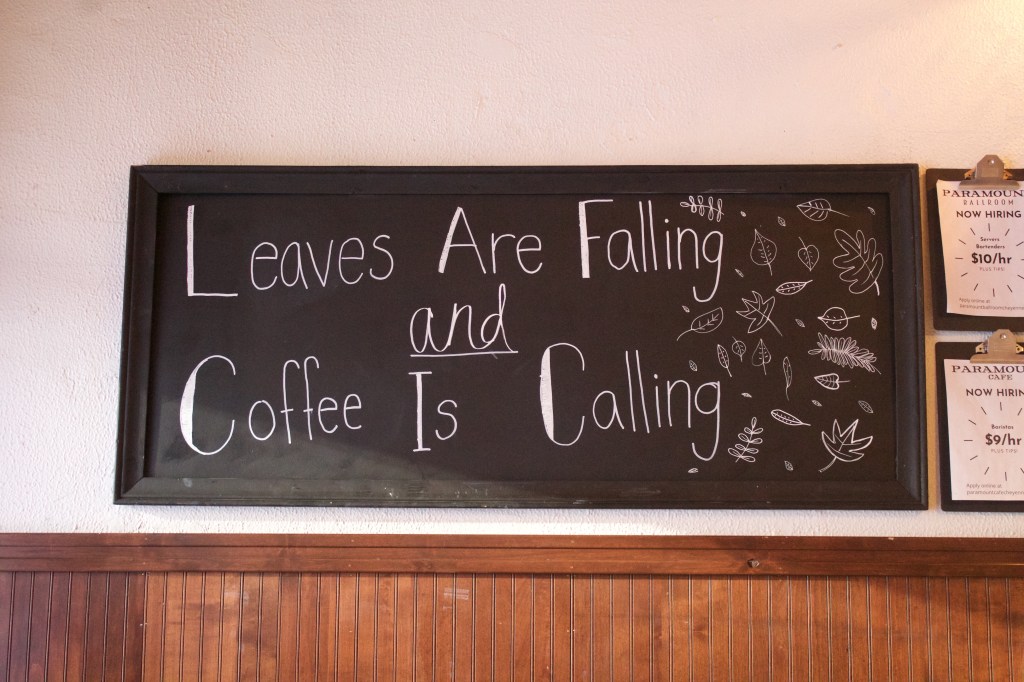 Leaves Are Falling
and
Coffee Is Calling
BALLROOM
NOW HIRING
Servers
Bartenders
$10/hr
PLUS TIPS!
Apply online at
CAFE
NOW
Baristas
$9/hr
PLUS TIPS!
Apply online at